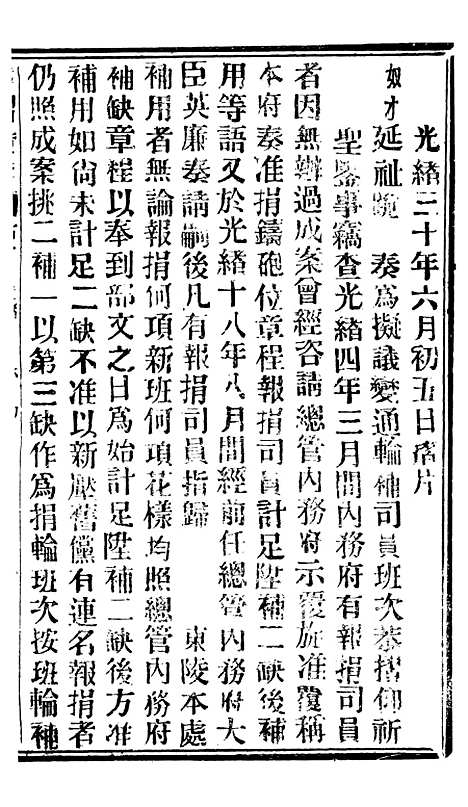 光緒二十年六月初五日奏片
奴才延祉跪　奏為擬議變通輪補司員班次恭摺仰祈
聖鑒事竊查光緒四年三月間內務府有報捐司員
者因無辦過成案曾經咨請總管內務府示覆旋准覆稱
本府奏准捐鑄砲位章程報捐司員計足陞補二缺後補
用等語又於光緒十八年八月間經前任總管內務府大
臣英廉奏請嗣後凡有報捐司員指歸　東陵本處
補用者無論報捐何項新班何項花樣均照總管內務府
補缺章程以奉到部文之日為始計足陞補二缺後方准
補用如尙未計足二缺不准以新壓舊儻有連名報捐者
仍照成案挑二補一以第三缺作為捐輪班次按班輪補